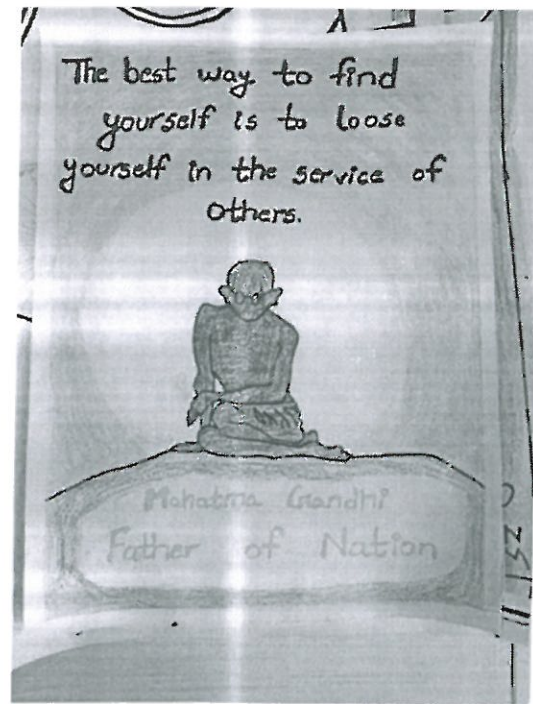 The best way to find
yourself is to loose
yourself in the service of
others.
Mahatma Gandhi
Father of Nation